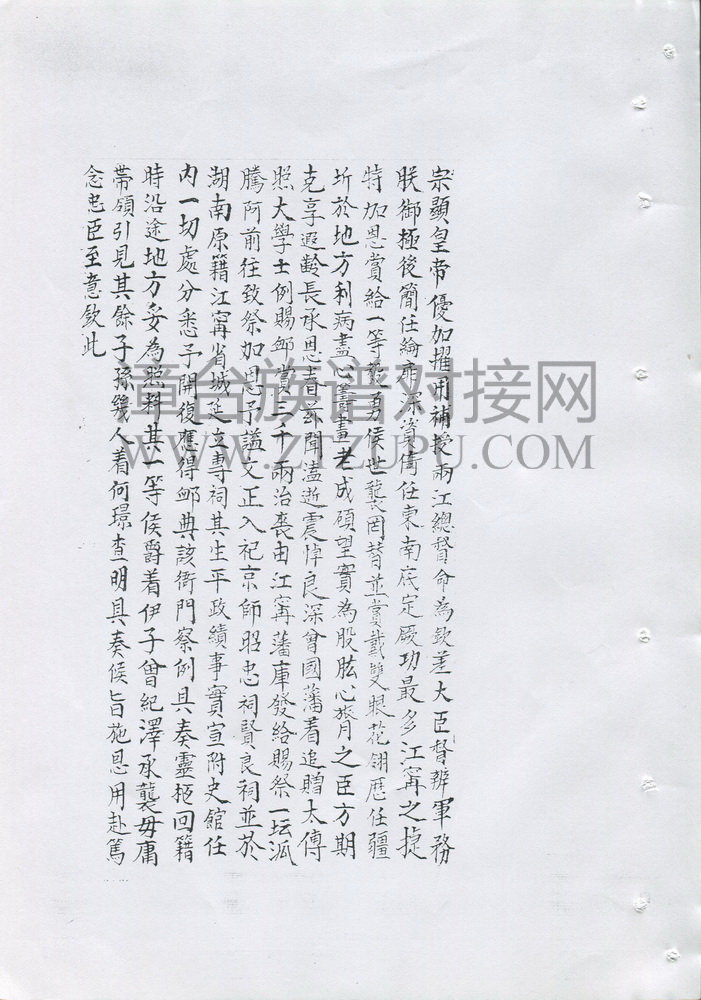 宗顯皇帝優加擢用補授兩江總督命為欽差大臣督辦軍務
朕御極後簡任綸扉深資倚任東南底定厥功最多江寗之捷
特加恩賞給一等毅勇侯世襲罔替並賞戴雙眼花翎歷任疆
圻於地方利病盡心籌畫老成碩望實為股肱心膂之臣方期
克享遐齡長承恩眷茲聞溘逝震悼良深曾國藩着追贈太傅
照大學士例賜卹賞三千兩治喪由江寗藩庫發給賜祭一坛派
騰阿前往致祭加恩予謚文正入祀京師昭忠祠賢良祠並於
湖南原籍江寗省城建立專祠其生平政績事實宣附史館任
內一切處分悉予開復應得卹典該衙門察例具奏靈柩回籍
時沿途地方妥為照料其一等侯爵着伊子曾紀澤承襲毋庸
帶領引見其餘子孫幾人着何璟查明具奏候旨施恩用赴篤
念忠臣至意欽此
章台族谱对接网
WWW.ZTZUPU.COM